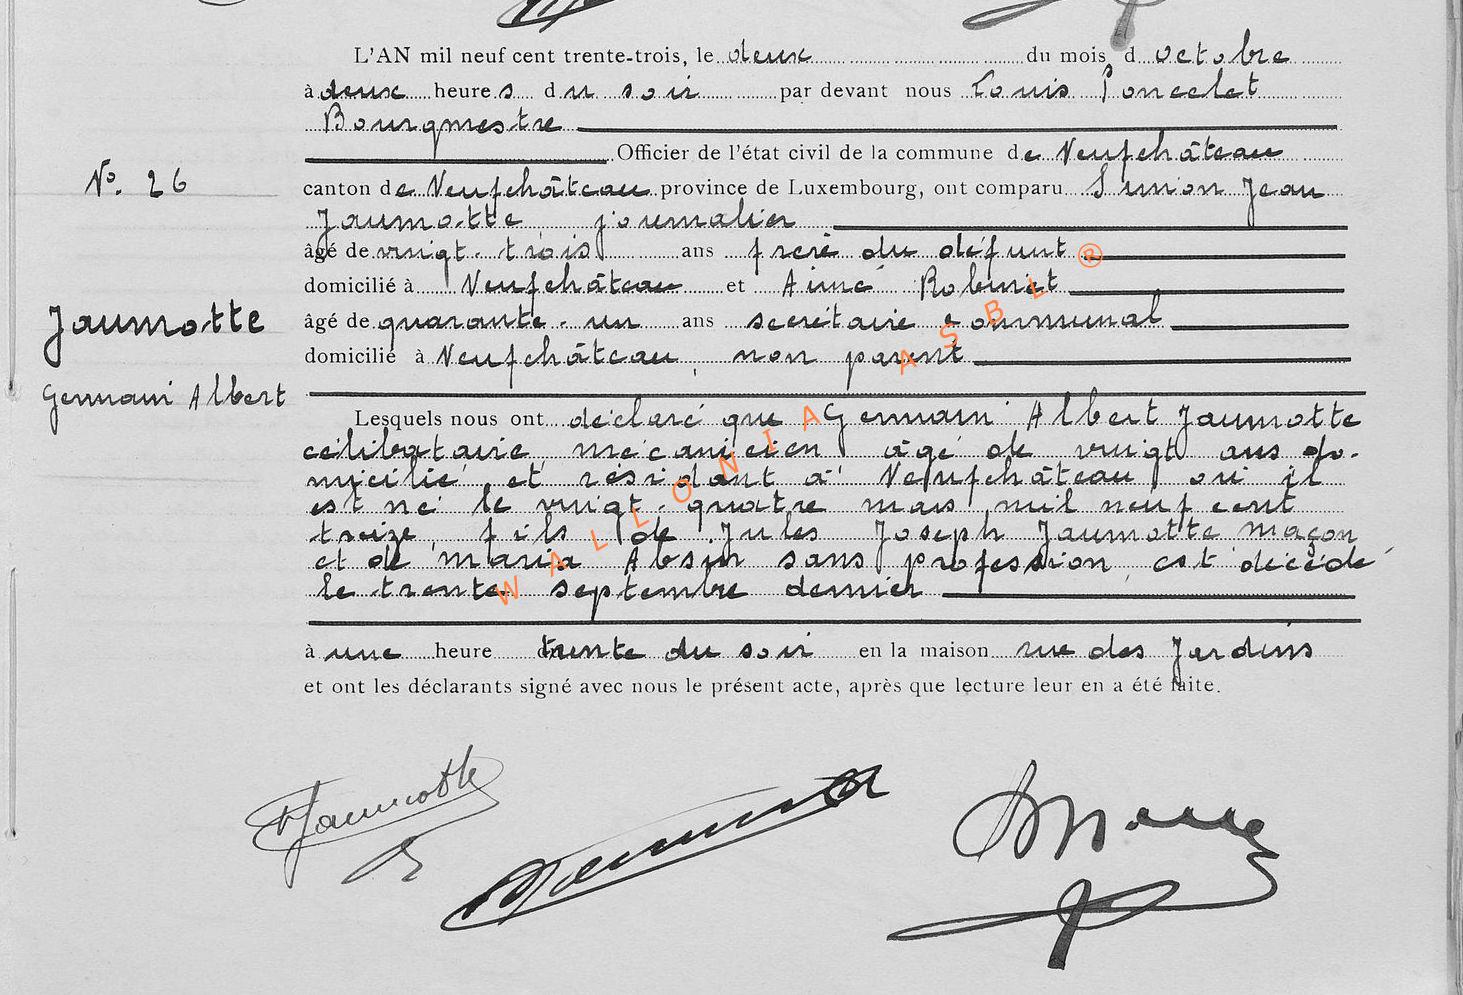 L'AN mil neuf cent trente-trois, le deux du mois d octobre
à deux heures du soir par devant nous Louis Poncelet
Bourgmestre
Officier de l'état civil de la commune de Neufchâteau
N°. 26
canton de Neufchâteau province de Luxembourg, ont comparu Simon Jean
Jaumotte journalier
âgé de vingt-trois ans frere du défunt
domicilié à Neufchâteau et Aimé Robinet
Jaumotte
âgé de quarante-un ans secrétaire communal
domicilié à Neufchâteau, non parent
Germain Albert
Lesquels nous ont déclaré que Germain Albert Jaumotte
célibataire, mécanicien âgé de vingt ans do-
micilié et résidant à Neufchâteau où il
est né le vingt-quatre mars mil neuf cent
treize, fils de Jules Joseph Jaumotte maçon
et de Maria Absin sans profession, est décédé
le trente septembre dernier
à une heure trente du soir en la maison rue des Jardins
et ont les déclarants signé avec nous le présent acte, après que lecture leur en a été faite.
Jaumotte
WALLONIA ASBL ®